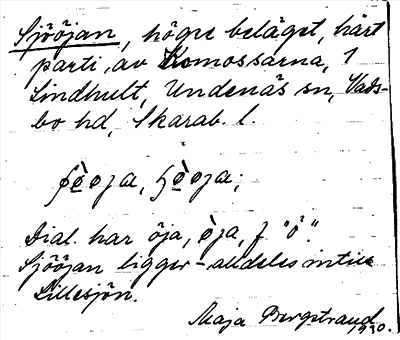 Sjööjan, högre beläget, hårt
parti, av Komossarna, 1
Lindhult, Undenäs sn, Vads-
bo hd, Skarab. l.
Dial. har öja, òja, f "ö".
Sjööjan ligger alldeles intill
Lillesjön.
Maja Bergstrand